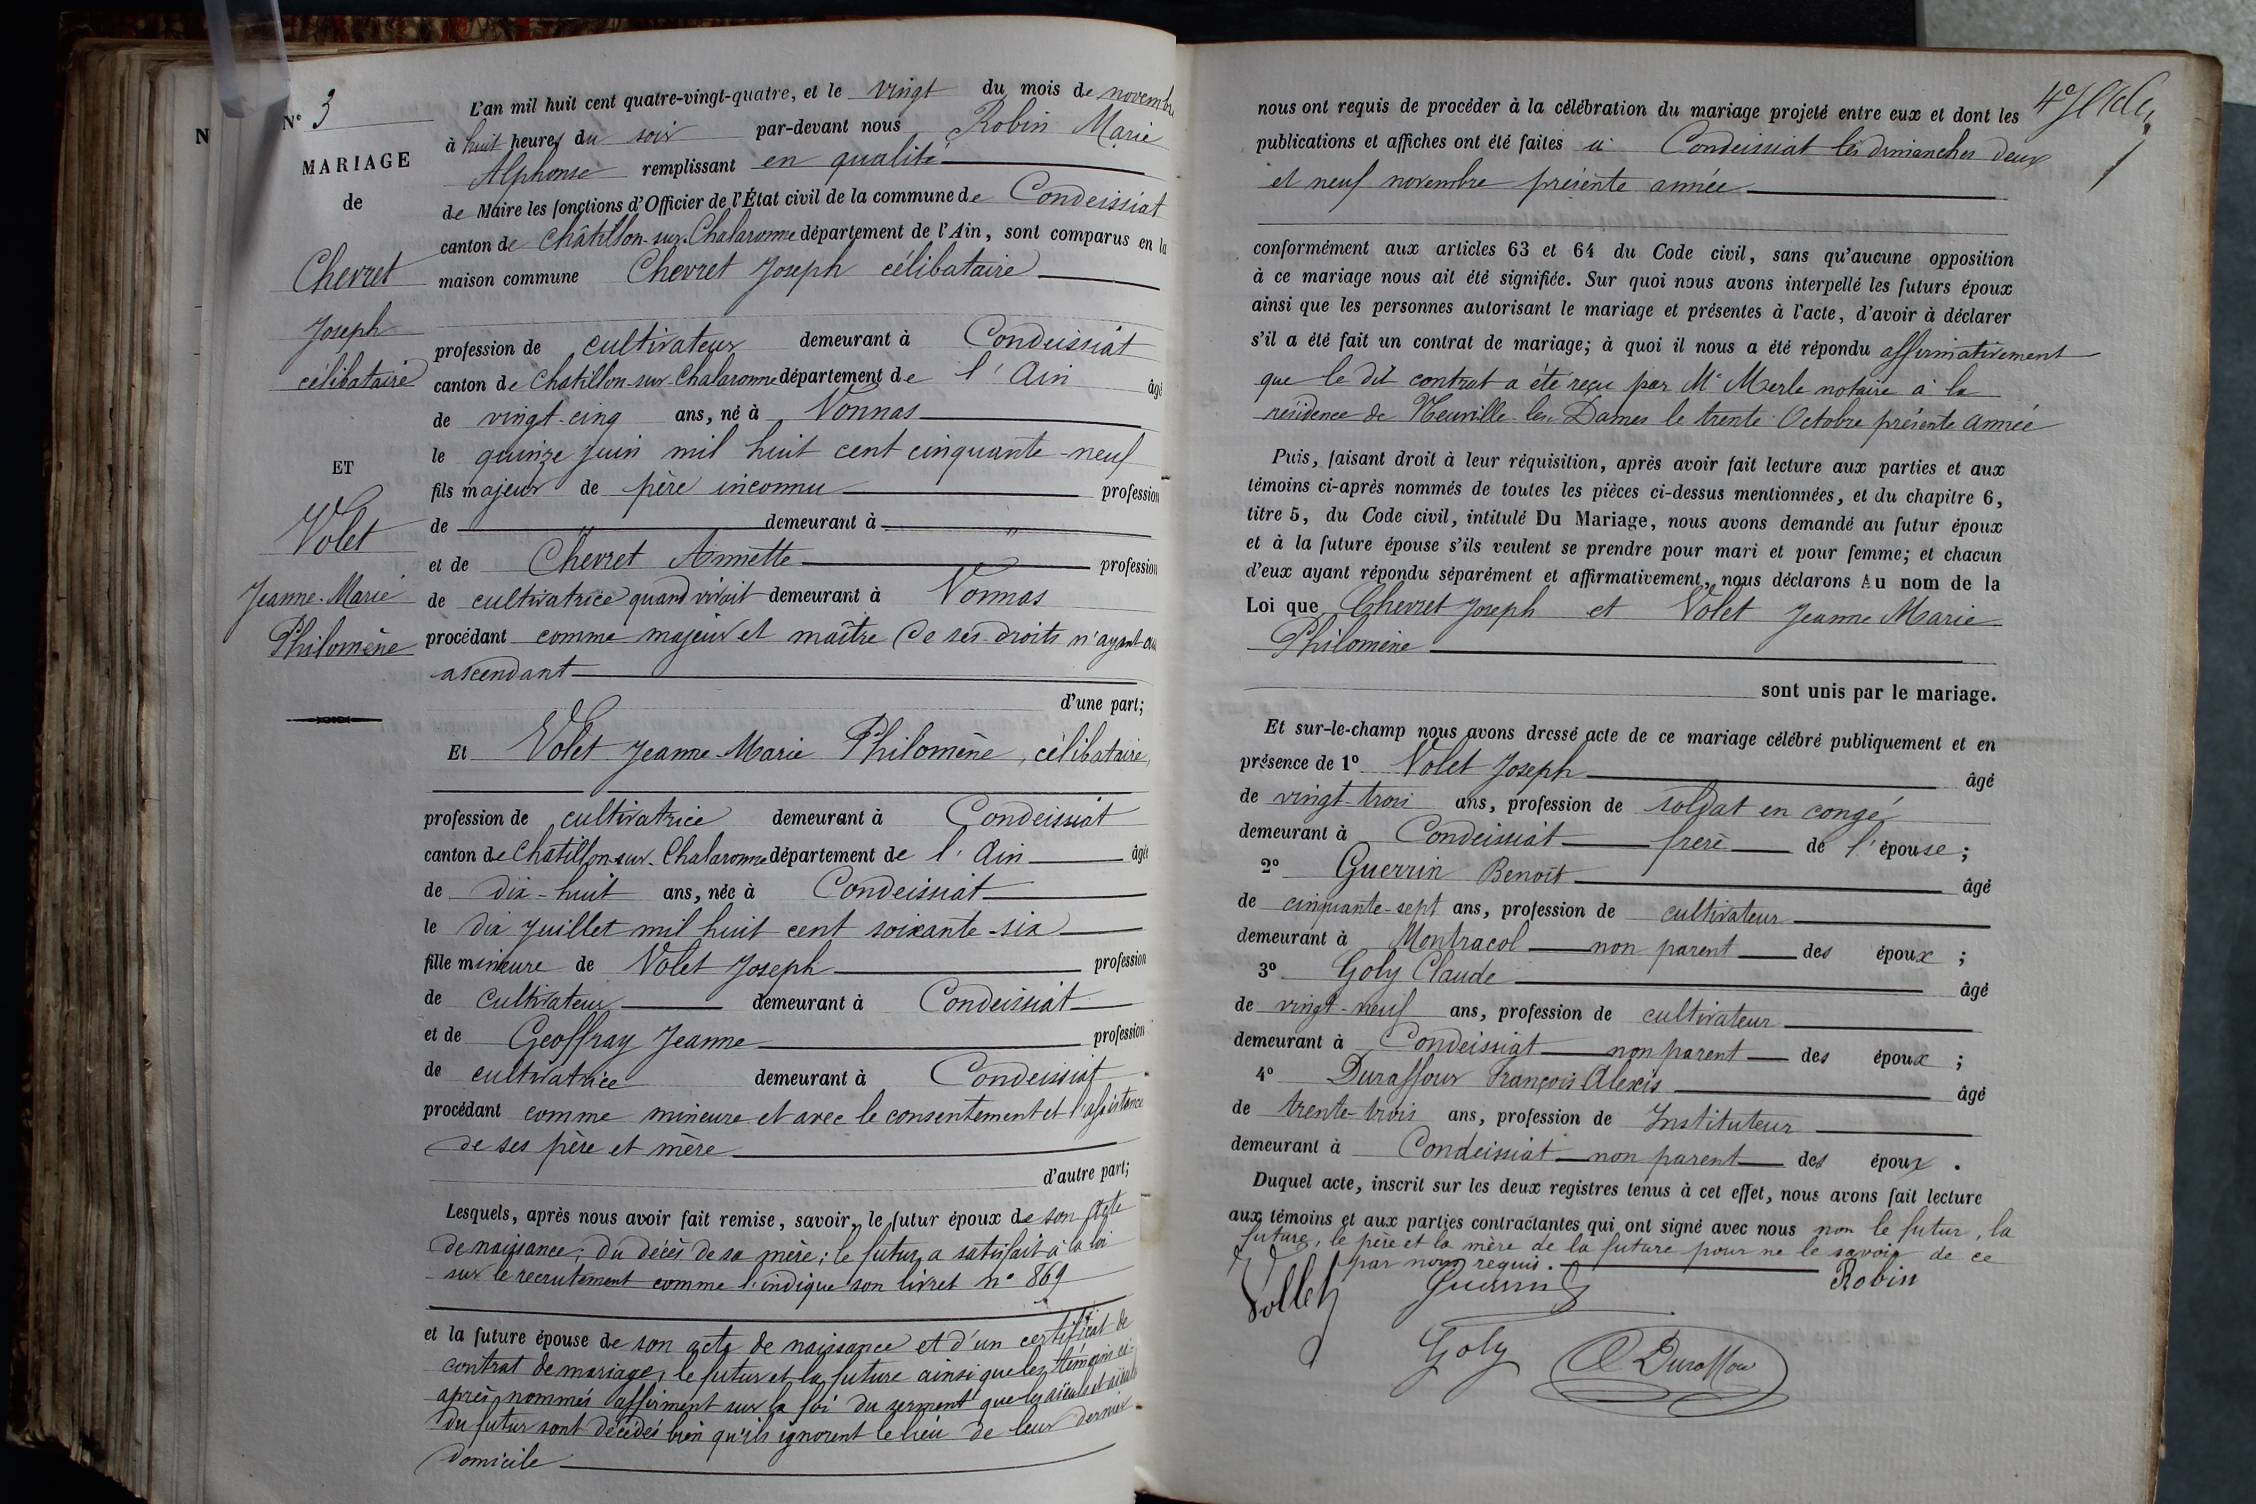 N
N° 3
MARIAGE
de
Chevret
Joseph
célibataire
ET
Volet
Jeanne-Marie
Philomène
L'an mil huit cent quatre-vingt-quatre, et le vingt du mois de novembre
à huit heures du soir par-devant nous Robin Marie
Alphonse remplissant en qualité
de Maire les fonctions d'Officier de l'État civil de la commune de Condeissiat
canton de Châtillon-sur-Chalaronne département de l'Ain, sont comparus en la
maison commune Chevret Joseph célibataire
profession de cultivateur demeurant à Condeissiat
canton de Chatillon-sur-Chalaronne département de l'Ain âgé
de vingt-cinq ans, né à Vonnas
le quinze juin mil huit cent cinquante-neuf
fils majeur de père inconnu profession
de " demeurant à "
et de Chevret Annette profession
de cultivatrice quand vivait demeurant à Vonnas
procédant comme majeur et maître de ses droits n'ayant au
ascendant
d'une part;
Et Volet Jeanne-Marie Philomène, célibataire,
profession de cultivatrice demeurant à Condeissiat
canton de Châtillon-sur-Chalaronne département de l'Ain âgée
de dix-huit ans, née à Condeissiat
le dix juillet mil huit cent soixante-six
fille mineure de Volet Joseph profession
de cultivateur demeurant à Condeissiat
et de Geoffray Jeanne profession
de cultivatrice demeurant à Condeissiat
procédant comme mineure et avec le consentement et l'assistance
de ses père et mère
d'autre part;
Lesquels, après nous avoir fait remise, savoir, le futur époux de son acte
de naissance, du décès de sa mère; le futur a satisfait à la loi
sur le recrutement comme l'indique son livret n° 869
et la future épouse de son acte de naissance et d'un certificat de
contrat de mariage, le futur et la future ainsi que les témoins ci-
après nommés affirment sur la foi du serment que les aïeuls et aïeules
du futur sont décédés bien qu'ils ignorent le lieu de leur dernier
domicile
nous ont requis de procéder à la célébration du mariage projeté entre eux et dont les
publications et affiches ont été faites à Condeissiat les dimanches deux
et neuf novembre présente année
conformément aux articles 63 et 64 du Code civil, sans qu'aucune opposition
à ce mariage nous ait été signifiée. Sur quoi nous avons interpellé les futurs époux
ainsi que les personnes autorisant le mariage et présentes à l'acte, d'avoir à déclarer
s'il a été fait un contrat de mariage; à quoi il nous a été répondu affirmativement
que le dit contrat a été reçu par Me Merle notaire à la
résidence de Neuville-les-Dames le trente Octobre présente année
Puis, faisant droit à leur réquisition, après avoir fait lecture aux parties et aux
témoins ci-après nommés de toutes les pièces ci-dessus mentionnées, et du chapitre 6,
titre 5, du Code civil, intitulé Du Mariage, nous avons demandé au futur époux
et à la future épouse s'ils veulent se prendre pour mari et pour femme; et chacun
d'eux ayant répondu séparément et affirmativement, nous déclarons Au nom de la
Loi que Chevret Joseph et Volet Jeanne Marie
Philomène
sont unis par le mariage.
Et sur-le-champ nous avons dressé acte de ce mariage célébré publiquement et en
présence de 1° Volet Joseph âgé
de vingt-trois ans, profession de soldat en congé
demeurant à Condeissiat frère de l'épouse;
2° Guerrin Benoît âgé
de cinquante-sept ans, profession de cultivateur
demeurant à Montracol non parent des époux;
3° Goly Claude âgé
de vingt-neuf ans, profession de cultivateur
demeurant à Condeissiat non parent des époux;
4° Duraffour François Alexis âgé
de trente-trois ans, profession de Instituteur
demeurant à Condeissiat non parent des époux.
Duquel acte, inscrit sur les deux registres tenus à cet effet, nous avons fait lecture
aux témoins et aux parties contractantes qui ont signé avec nous non le futur, la
future, le père et la mère de la future pour ne le savoir de ce
par nous requis.
Robin
Vollet
Guerrin
Goly
Duraffour